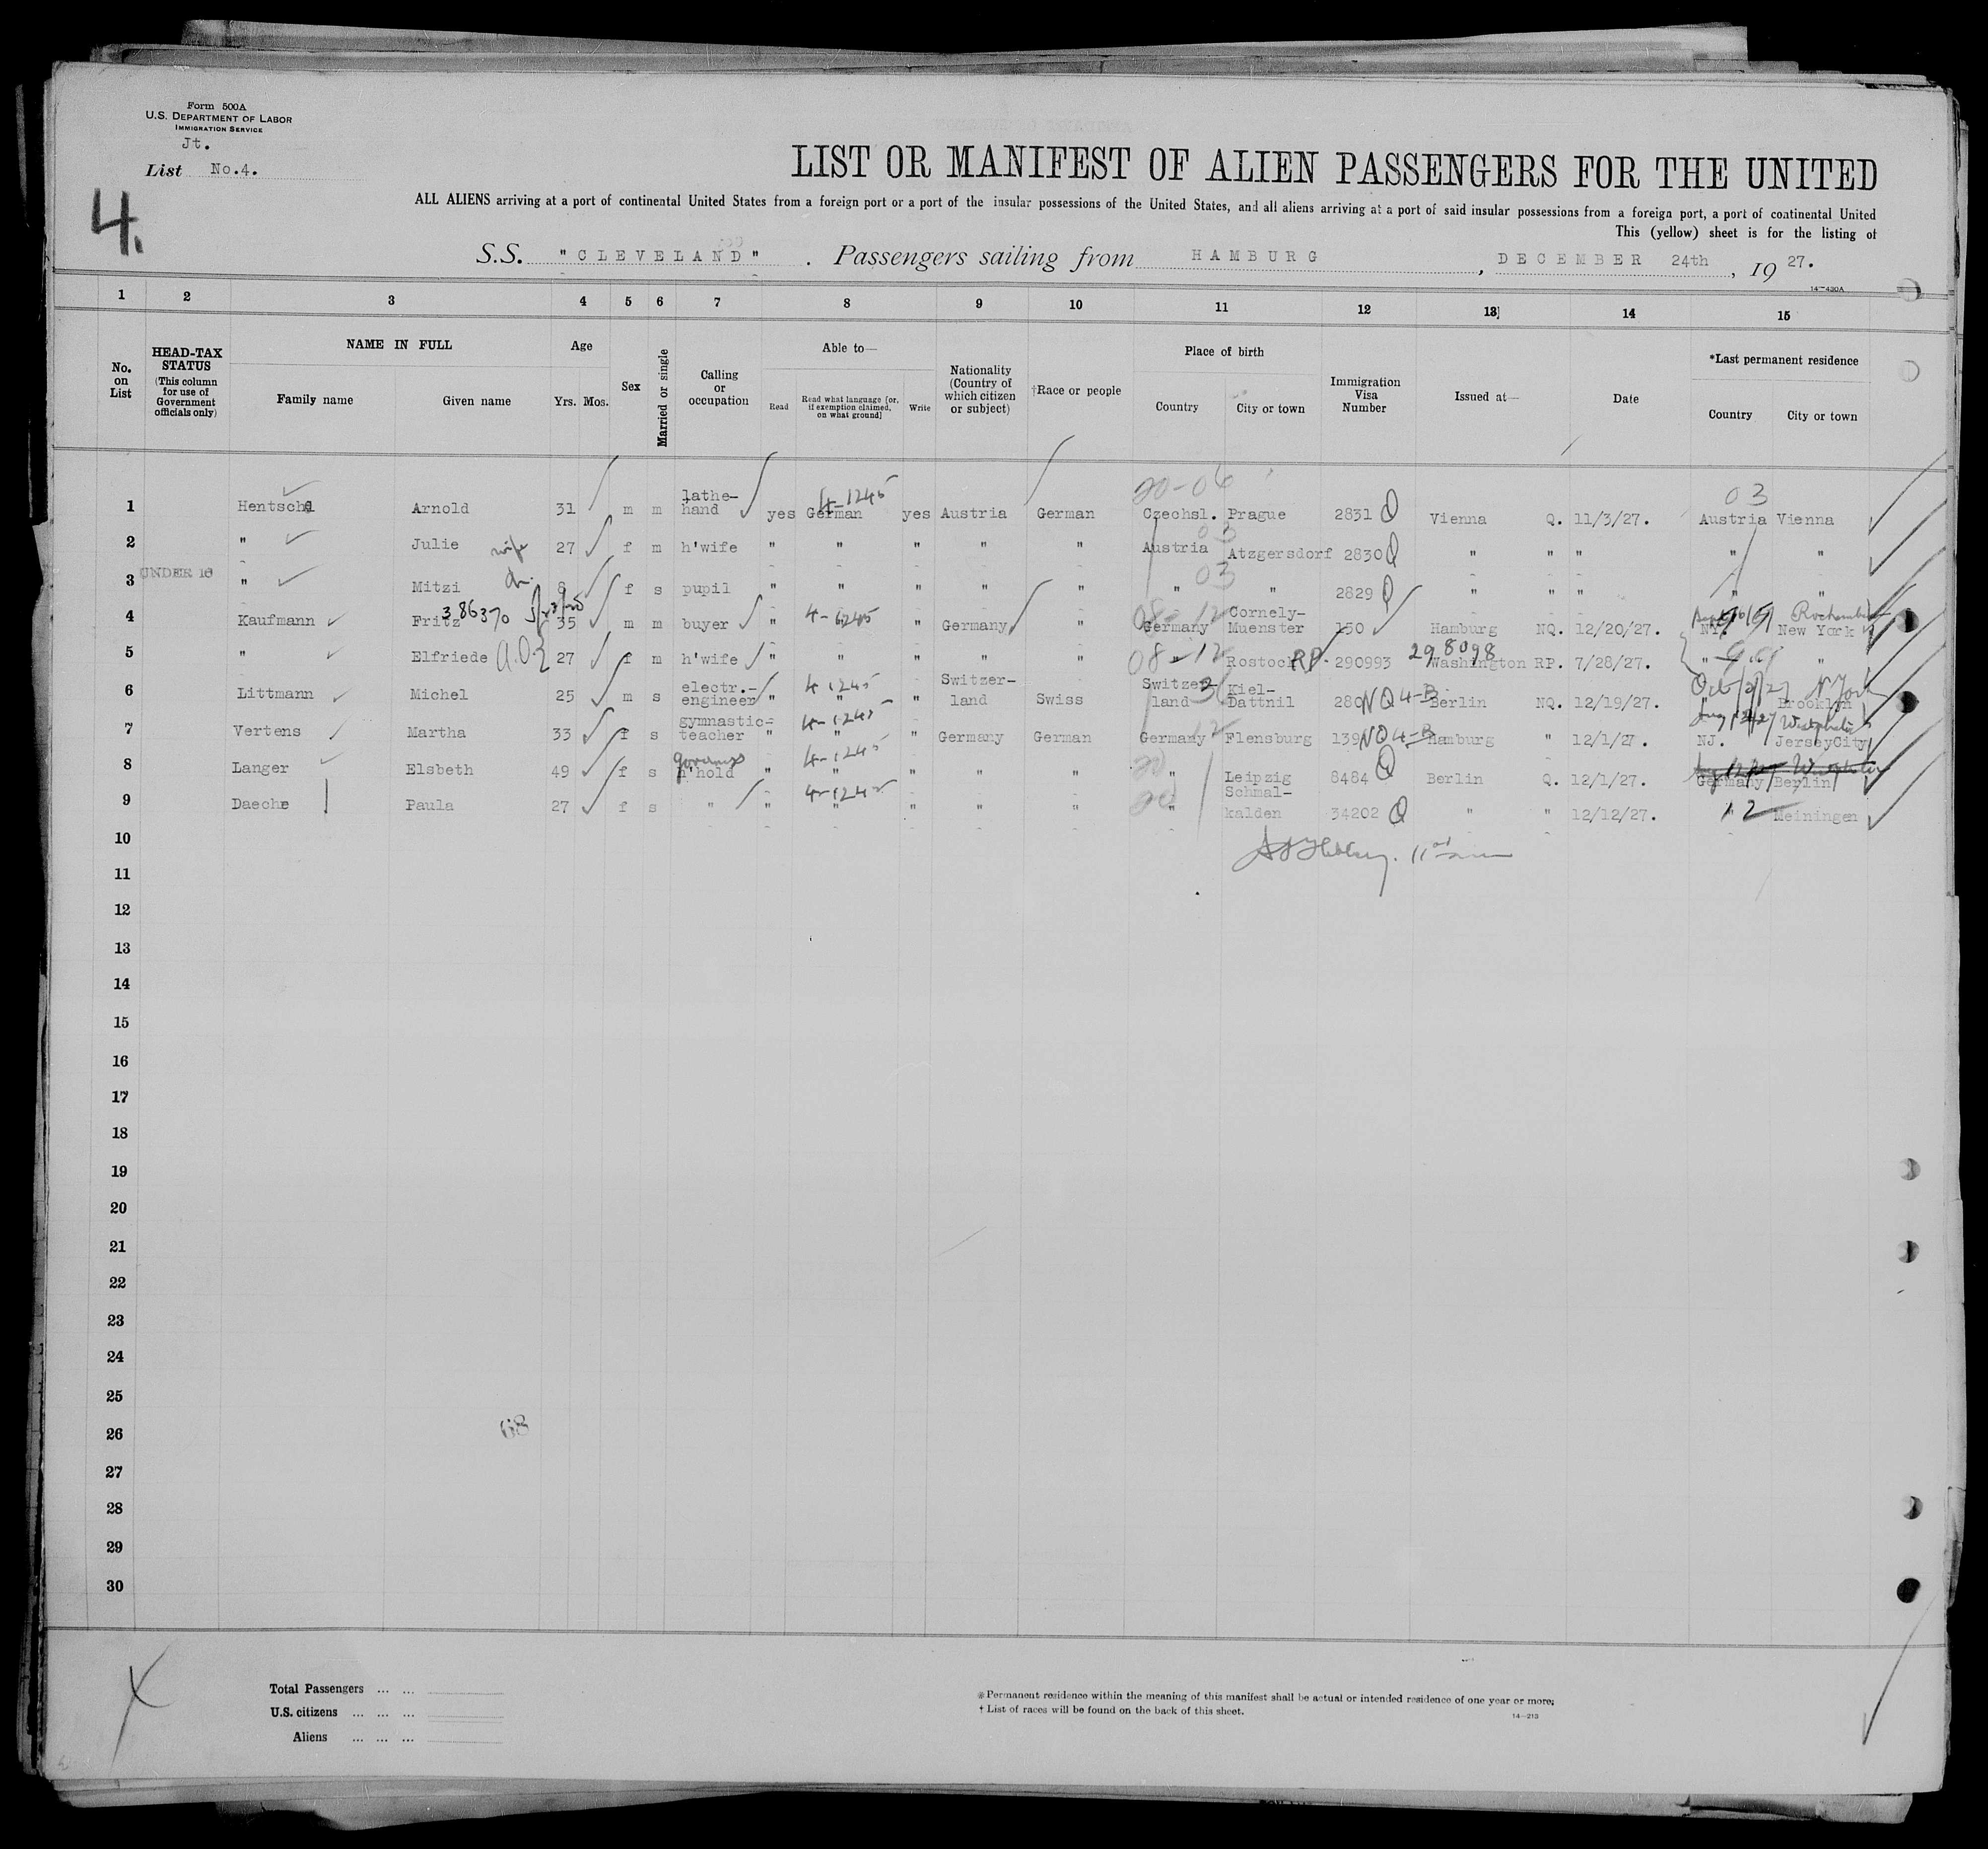 Form 500A
U.S. DEPARTMENT OF LABOR
IMMIGRATION SERVICE
Jt.
List No.4.
4.
LIST OR MANIFEST OF ALIEN PASSENGERS FOR THE UNITED
ALL ALIENS arriving at a port of continental United States from a foreign port or a port of the insular possessions of the United States, and all aliens arriving at a port of said insular possessions from a foreign port, a port of continental United
This (yellow) sheet is for the listing of
S.S. "CLEVELAND". Passengers sailing from HAMBURG, DECEMBER 24th, 19 27.
14—430A
1 2 3 4 5 6 7 8 9 10 11 12 13 14 15
No. on List
HEAD-TAX STATUS (This column for use of Government officials only)
NAME IN FULL
Family name Given name
Age
Yrs. Mos.
Sex
Married or single
Calling or occupation
Able to—
Read
Read what language [or, if exemption claimed, on what ground]
Write
Nationality (Country of which citizen or subject)
†Race or people
Place of birth
Country City or town
Immigration Visa Number
Issued at—
Date
*Last permanent residence
Country City or town
20-06 03
1 Hentschl Arnold 31 m m lathe-hand yes German 4-1245 yes Austria German Czechsl. Prague 2831 Q Vienna Q. 11/3/27. Austria Vienna
03
2 " Julie wife 27 f m h'wife " " " " " Austria Atzgersdorf 2830 Q " " " " "
03
3 UNDER 16 " Mitzi 8 f s pupil " " " " " " " 2829 Q " " " " "
386370
4 Kaufmann Fritz 35 m m buyer " 4-1245 " Germany " 08-12 Germany Cornely-Muenster 150 Hamburg NQ. 12/20/27. NY. New York
5 " Elfriede 27 f m h'wife " " " " " 08-12 " Rostock RP. 290993 298098 Washington RP. 7/28/27. " "
6 Littmann Michel 25 m s electr.-engineer " 4-1245 " " Switzer-land Swiss Switzer-land Kiel-Dattnil 280 NQ 4-B Berlin NQ. 12/19/27. " Brooklyn
7 Vertens Martha 33 f s gymnastic-teacher " 4-1245 " " Germany German Germany 12 Flensburg 139 NQ 4-B Hamburg " 12/1/27. NJ. JerseyCity
8 Langer Elsbeth 49 f s governess h'hold " 4-1245 " " " " 20 " Leipzig 8484 Q Berlin Q. 12/1/27. Germany Berlin
9 Daeche Paula 27 f s " " 4-1245 " " " 20 " Schmal-kalden 34202 Q " " 12/12/27. " 12 Meiningen
10
11
12
13
14
15
16
17
18
19
20
21
22
23
24
25
26
68
27
28
29
30
Total Passengers ... ...
U.S. citizens ... ... ...
Aliens ... ... ...
*Permanent residence within the meaning of this manifest shall be actual or intended residence of one year or more.
† List of races will be found on the back of this sheet.
14—213